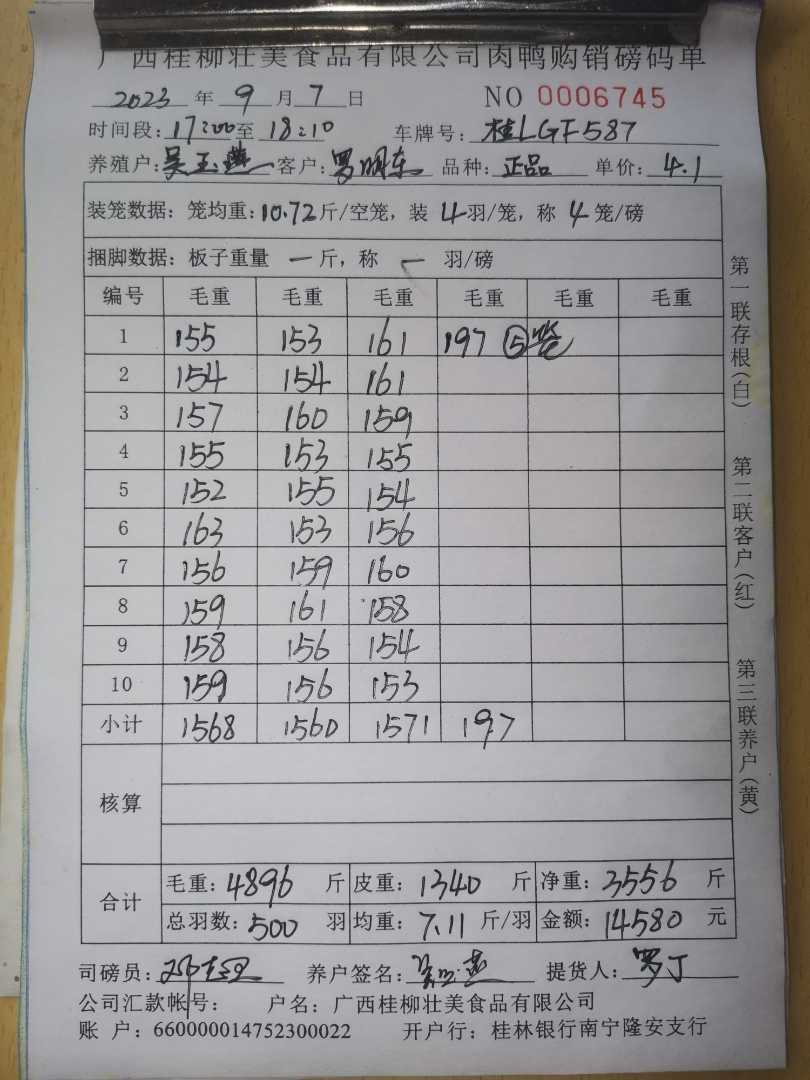 广西桂柳壮美食品有限公司肉鸭购销磅码单
2023 年 9 月 7 日 NO 0006745
时间段: 17:00 至 18:10 车牌号: 桂LGF587
养殖户: 吴玉燕 客户: 罗明东 品种: 正品 单价: 4.1
装笼数据: 笼均重: 10.72 斤/空笼, 装 4 羽/笼, 称 4 笼/磅
捆脚数据: 板子重量 一 斤, 称 一 羽/磅
编号 毛重 毛重 毛重 毛重 毛重 毛重
1 155 153 161 197 ⑤笼
2 154 154 161
3 157 160 159
4 155 153 155
5 152 155 154
6 163 153 156
7 156 159 160
8 159 161 158
9 158 156 154
10 159 156 153
小计 1568 1560 1571 197
核算
合计 毛重: 4896 斤 皮重: 1340 斤 净重: 3556 斤
总羽数: 500 羽 均重: 7.11 斤/羽 金额: 14580 元
司磅员: 养户签名: 吴玉燕 提货人: 罗丁
公司汇款帐号: 户名: 广西桂柳壮美食品有限公司
账 户: 660000014752300022 开户行: 桂林银行南宁隆安支行
第一联存根(白)
第二联客户(红)
第三联养户(黄)